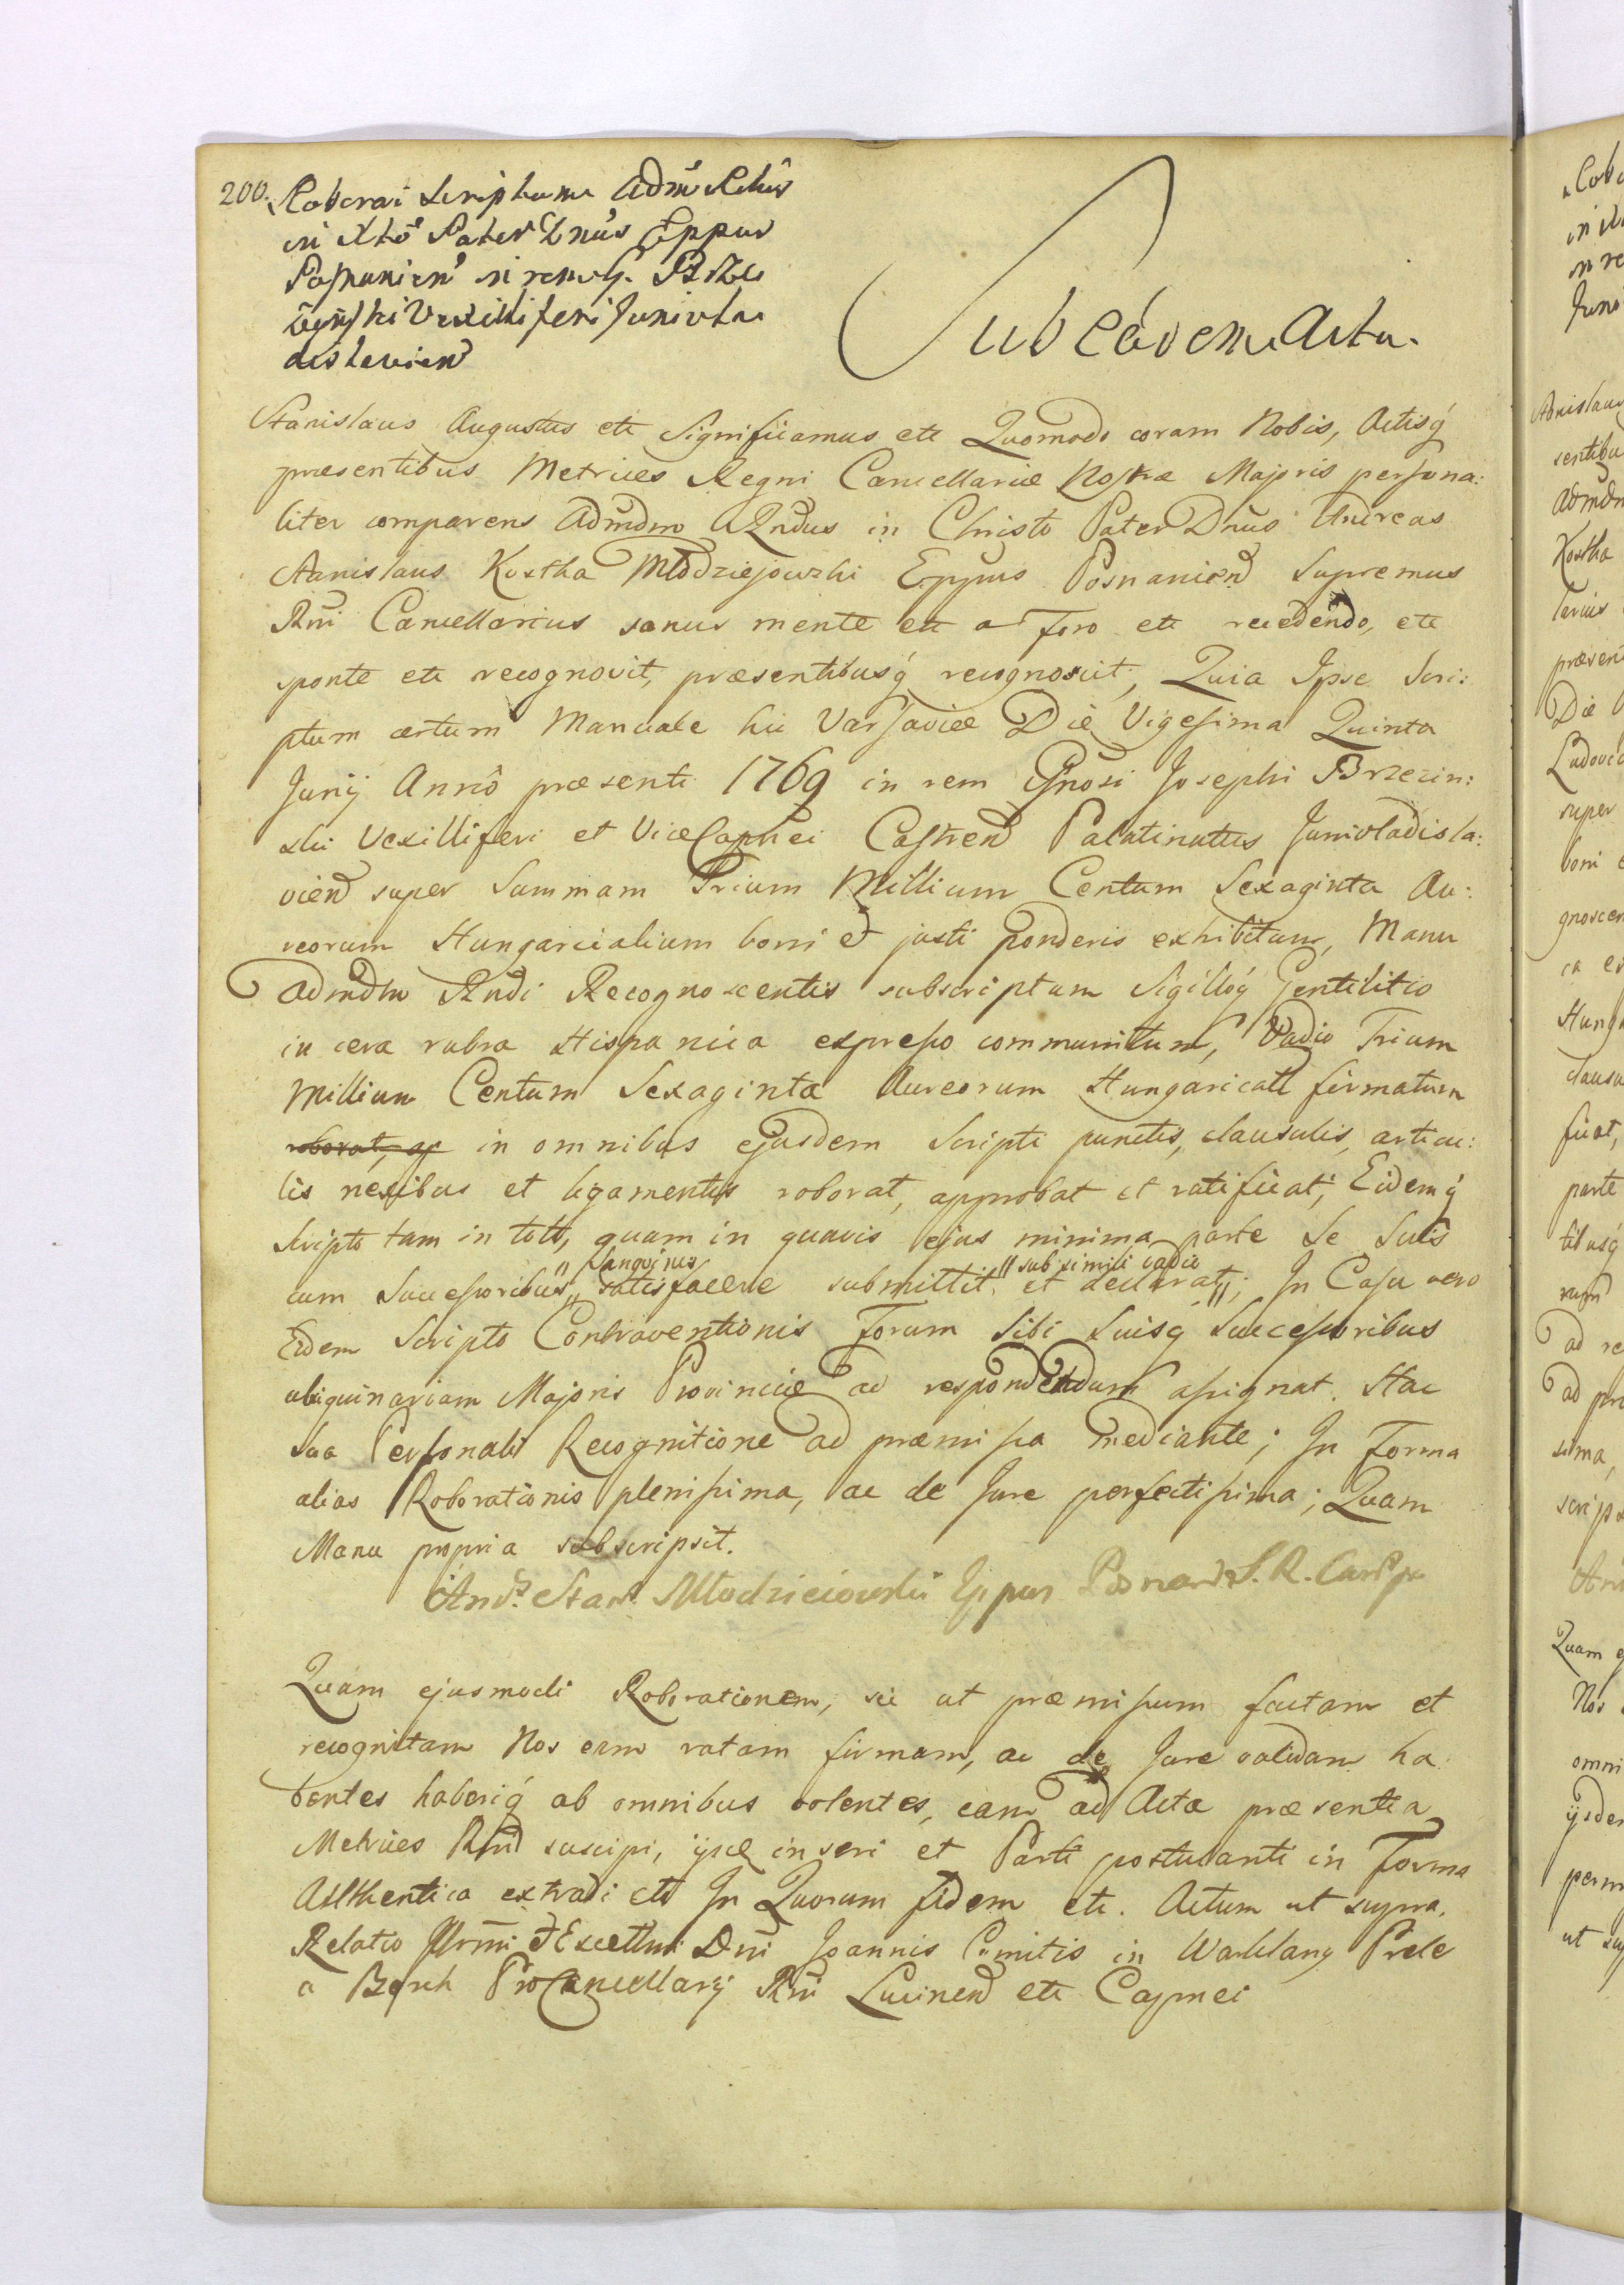 200. Roborat Scriptum Adm Rndus
in Xto Pater Dnus Eppus
Posnanien in rem G. Brze
zinski Vexilliferi Junivla
dislavien
Sub eadem Actu.
Stanislaus Augustus etc Significamus etc Quomodo coram Nobis, Actisq́
præsentibus Metrices Regni Cancellariæ Nostræ Majoris persona:
liter comparens Admdm Rndus in Christo Pater Dnus Andreas
Stanislaus Kostha Młodziejowski Eppus Posnanien Supremus
Rni Cancellarius sanus mente etc a Foro etc recedendo, etc
sponte etc recognovit, præsentibusq́ recognoscit, Quia Ipse Scri:
ptum certum Manuale hic Varsaviæ Die Vigesima Quinta
Junij Anno præsenti 1769 in rem Gnosi Josephi Brzezin:
ski Vexilliferi et ViceCapnei Castren Palatinatus Junivladisla:
vien super Summam Trium Millium Centum Sexaginta Au:
reorum Hungaricalium boni et justi ponderis exhibitum, Manu
Admdm Rndi Recognoscentis subscriptum Sigilloq́ Gentilitio
in cera rubra Hispanica expresso communitum, Vadio Trium
Millium Centum Sexaginta Aureorum Hungaricall firmatum
roborat, ac in omnibus ejusdem Scripti punctis, clausulis, articu:
lis nexibus et ligamentis roborat, approbat et ratificat, Eidemq́
Scripto tam in toto, quam in quavis ejus minima parte Se Suis
sangvinis " sub simili vadio
cum Successoribus " satisfacere submittit et declarat "; In Casu vero
Eidem Scripto Contraventionis Forum Sibi Suisq́ Successoribus
ubiquinarium Majoris Provinciæ ad respondendum assignat. Hac
sua Personali Recognitione ad præmissa mediante; In Forma
alias Roborationis plenissima, ac de Jure perfectissima; Quam
Manu propria subscripsit.
And. Stan. Młodzieiowski Eppus Posnan S. R. Canc
Quam ejusmodi Roborationem, sic ut præmissum factam et
recognitam Nos eam ratam firmam, ac de Jure validam ha
bentes haberiq́ ab omnibus volentes, eam ad Acta præsentia
Metrices Rni suscipi, ijsq́ inseri et Parti postulanti in Forma
Authentica extradi etc In Quorum fidem etc. Actum ut supra.
Relatio Illrmi et Excellmi Dni Joannis Comitis in Warklany Prele
a Borch ProCancellarij Rni Lucinen etc Capnei